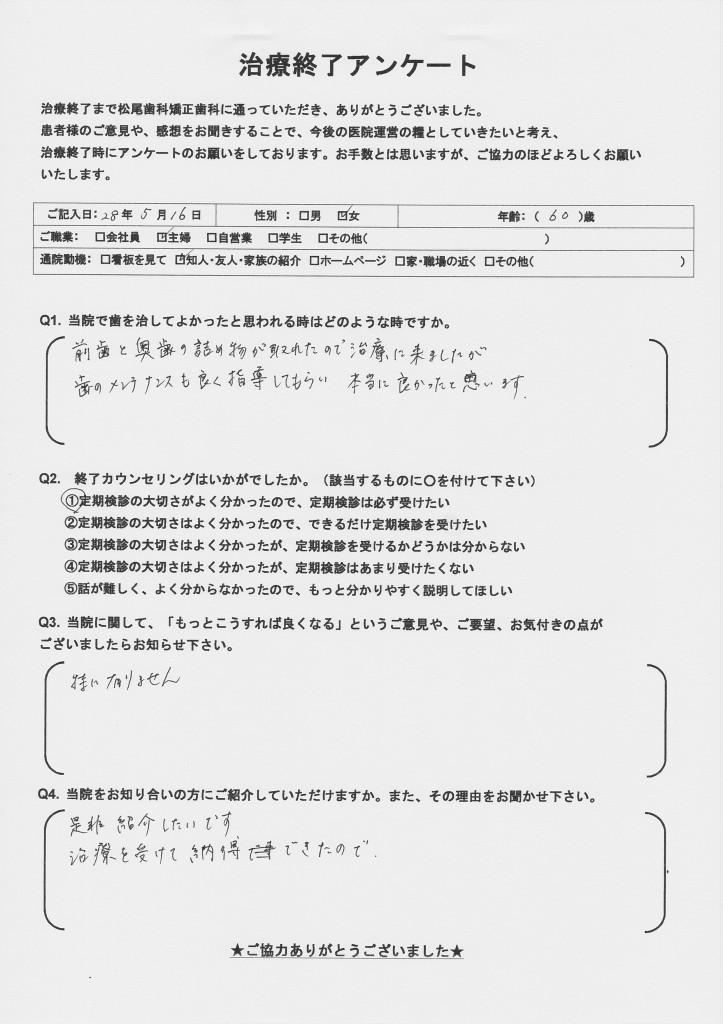 治療終了アンケート
治療終了まで松尾歯科矯正歯科に通っていただき、ありがとうございました。
患者様のご意見や、感想をお聞きすることで、今後の医院運営の糧としていきたいと考え、
治療終了時にアンケートのお願いをしております。お手数とは思いますが、ご協力のほどよろしくお願い
いたします。
ご記入日：28年 5月16日 性別 ： □男 ☑女 年齢：（ 60 ）歳
ご職業： □会社員 ☑主婦 □自営業 □学生 □その他（ ）
通院動機： □看板を見て ☑知人・友人・家族の紹介 □ホームページ □家・職場の近く □その他（ ）
Q1. 当院で歯を治してよかったと思われる時はどのような時ですか。
前歯と奥歯の詰め物が取れたので治療に来ましたが
歯のメンテナンスも良く指導してもらい 本当に良かったと思います.
Q2. 終了カウンセリングはいかがでしたか。（該当するものに〇を付けて下さい）
①定期検診の大切さがよく分かったので、定期検診は必ず受けたい
②定期検診の大切さはよく分かったので、できるだけ定期検診を受けたい
③定期検診の大切さはよく分かったが、定期検診を受けるかどうかは分からない
④定期検診の大切さはよく分かったが、定期検診はあまり受けたくない
⑤話が難しく、よく分からなかったので、もっと分かりやすく説明してほしい
Q3. 当院に関して、「もっとこうすれば良くなる」というご意見や、ご要望、お気付きの点が
ございましたらお知らせ下さい。
特に有りません
Q4. 当院をお知り合いの方にご紹介していただけますか。また、その理由をお聞かせ下さい。
是非 紹介したいです
治療を受けて 納得 できたので.
★ご協力ありがとうございました★